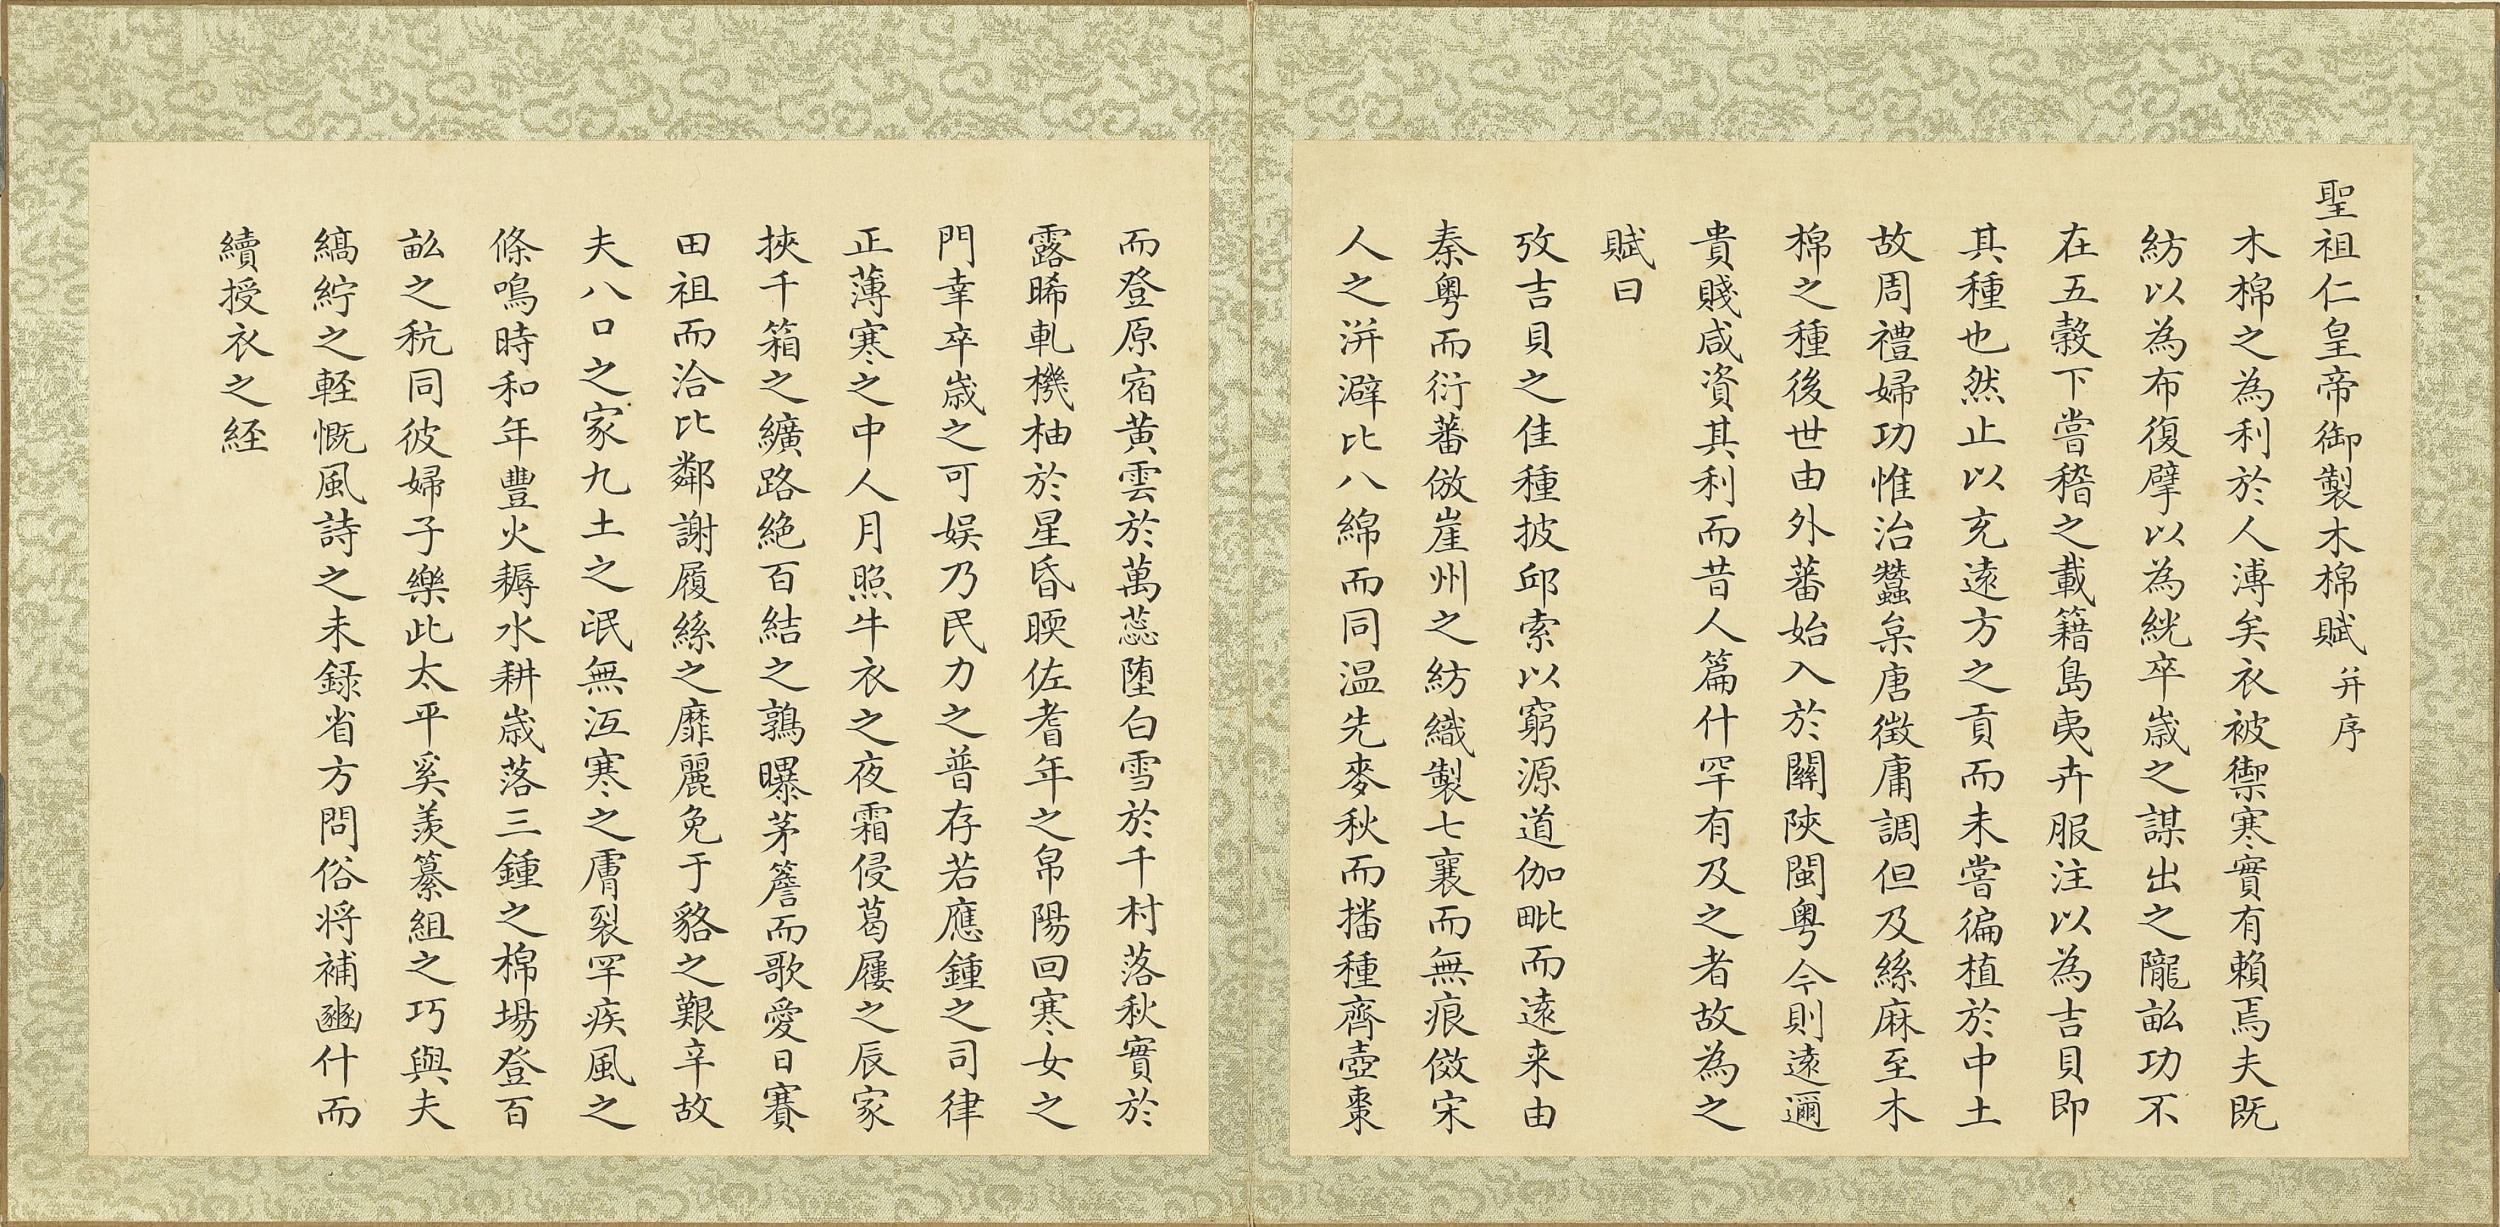 聖祖仁皇帝御製木棉賦 并序
木棉之為利於人溥矣衣被禦寒實有賴焉夫既
紡以為布復擘以為絖卒歲之謀出之隴畝功不
在五穀下嘗稽之載籍島夷卉服注以為吉貝即
其種也然止以充遠方之貢而未嘗徧植於中土
故周禮婦功惟治蠶枲唐徵庸調但及絲麻至木
棉之種後世由外蕃始入於關陝閩粵今則遠邇
貴賤咸資其利而昔人篇什罕有及之者故為之
賦曰
攷吉貝之佳種披邱索以窮源道伽毗而遠来由
秦粵而衍蕃倣崖州之紡織製七襄而無痕傚宋
人之洴澼比八綿而同温先麥秋而播種齊壺棗
而登原宿黄雲於萬蕊墮白雪於千村落秋實於
露晞軋機柚於星昏䁔佐耆年之帛陽回寒女之
門幸卒歳之可娱乃民力之普存若應鍾之司律
正薄寒之中人月照牛衣之夜霜侵葛屨之辰家
挾千箱之纊路絶百結之鶉曝茅簷而歌愛日賽
田祖而洽比鄰謝履絲之靡麗免于貉之艱辛故
夫八口之家九土之氓無冱寒之膚裂罕疾風之
條鳴時和年豐火耨水耕歳落三鍾之棉場登百
畝之秔同彼婦子樂此太平奚羨纂組之巧與夫
縞紵之輕慨風詩之未録省方問俗将補豳什而
續授衣之経